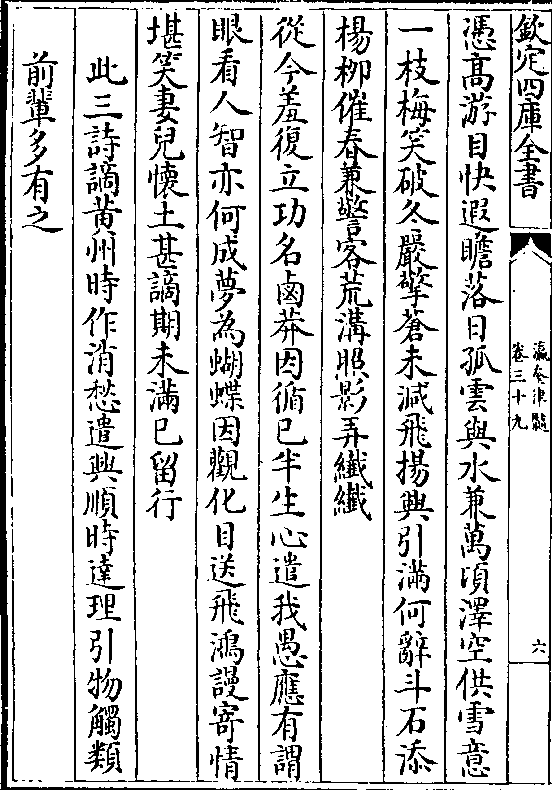 欽定四庫全書
瀛奎律髓
卷三十九
六
憑髙游目快遐瞻落日孤雲與水兼萬頃澤空供雪意
一枝梅笑破冬嚴擎蒼未減飛揚興引滿何辭斗石添
楊柳催春兼警客荒溝照影弄纎纎
從今羞復立功名鹵莽因循已半生心遣我愚應有謂
眼看人智亦何成夢為蝴蝶因觀化目送飛鴻謾寄情
堪笑妻兒懷土甚謫期未滿已留行
此三詩謫黄州時作消愁遣興順時達理引物觸類
前輩多有之